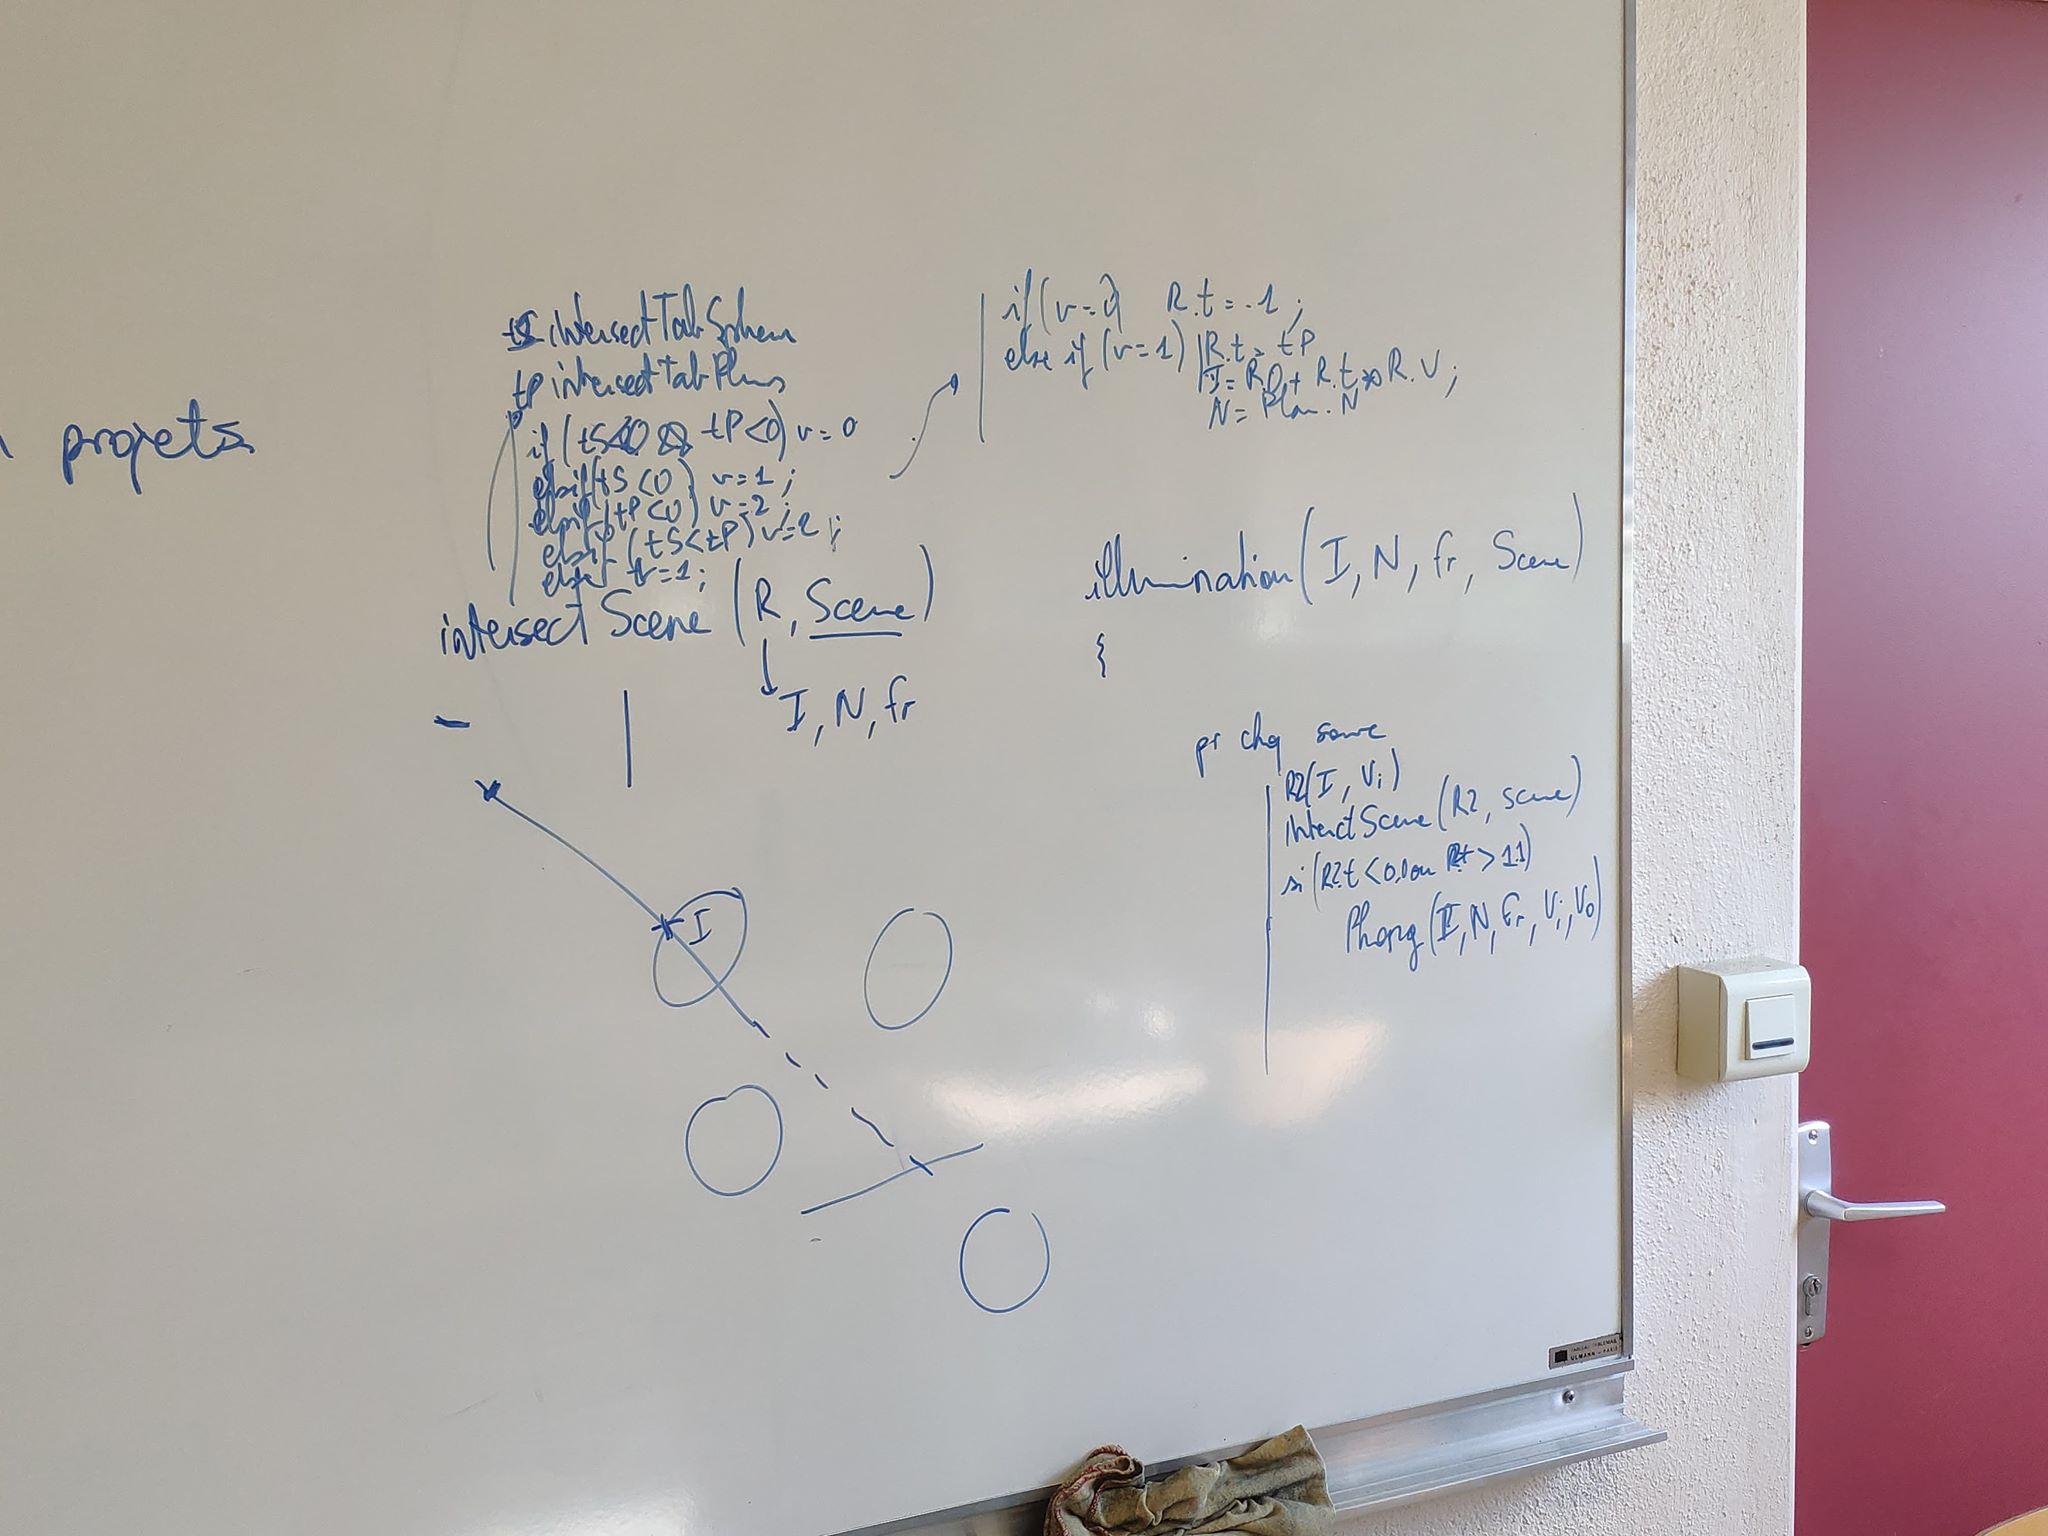 projets
tS intersectTabSphere
tP intersectTabPlans
if (tS<0 && tP<0) v=0
elsif (tS<0) v=1;
elsif (tP<0) v=2;
elsif (tS<tP) v=2;
else v=1;
intersect Scene (R, Scene)
I, N, fr
I
if (v=0) R.t=-1;
else if (v=1) R.t= tP
I= R.O + R.t * R.V;
N= Plan.N
illumination (I, N, fr, Scene)
{
pr chq source
R2(I, Vi)
intersect Scene (R2, scene)
si (R2.t<0.1 ou R2.t > 1.1)
Phong (I, N, fr, Vi, Vo)
ULMANN - PARIS